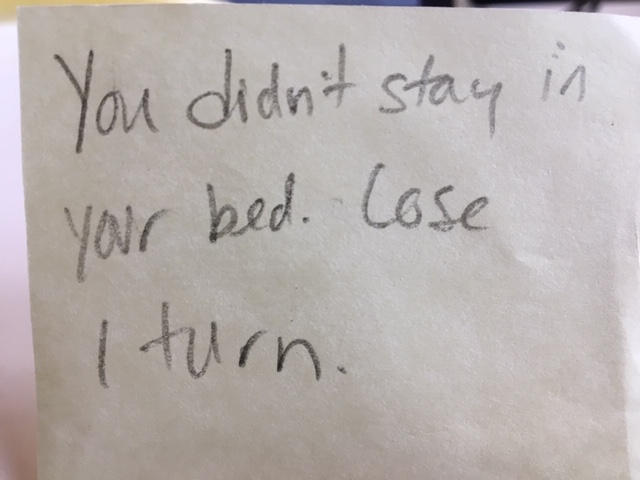 You didn't stay in
your bed. Lose
1 turn.